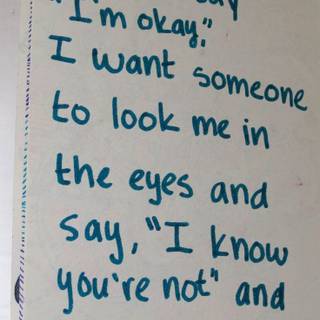 "I'm okay,"
I want someone
to look me in
the eyes and
say, "I know
you're not" and